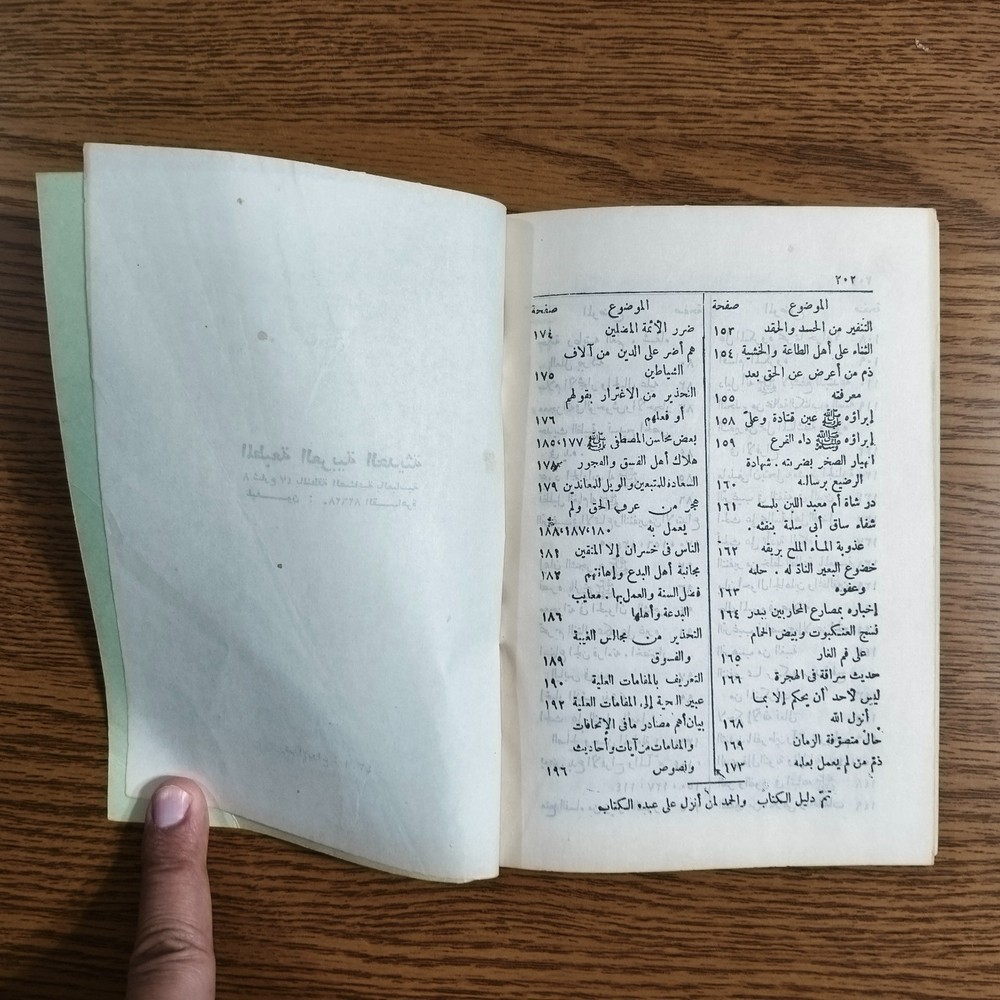 ٢٠٢
الموضوع صفحة
التنفير من الحسد والحقد ١٥٣
الثناء على أهل الطاعة والخشية ١٥٤
ذم من أعرض عن الحق بعد
معرفته ١٥٥
إبراؤه ﷺ عين قتادة وعلىّ ١٥٨
إبراؤه ﷺ داء القرع ١٥٩
انهيار الصخر بضربته . شهادة
الرضيع برسالته ١٦٠
در شاة أم معبد اللبن بلمسه ١٦١
شفاء ساق أبى سلمة بنفثه .
عذوبة الماء الملح بريقه ١٦٢
خضوع البعير الناد له . حلمه
وعفوه ١٦٣
إخباره بمصارع المحاربين ببدر ١٦٤
نسج العنكبوت وبيض الحمام
على فم الغار ١٦٥
حديث سراقة فى الهجرة ١٦٦
ليس لأحد أن يحكم إلا بما
أنزل الله ١٦٨
حال متصوفة الزمان ١٦٩
ذم من لم يعمل بعلمه ١٧٣
الموضوع صفحة
ضرر الأئمة المضلين ١٧٤
هم أضر على الدين من آلاف
الشياطين ١٧٥
التحذير من الاغترار بقولهم
أو فعلهم ١٧٦
بعض محاسن المصطفى ﷺ ١٧٧،١٨٥
هلاك أهل الفسق والفجور
السعادة للمتبعين والويل للمعاندين ١٧٩
هجر من عرف الحق ولم
يعمل به ١٨٠،١٨٧،١٨٨
الناس فى خسران إلا المتقين ١٨١
مجانبة أهل البدع وإهانتهم ١٨٢
فضل السنة والعمل بها . معايب
البدعة وأهلها ١٨٦
التحذير من مجالس الغيبة
والفسوق ١٨٩
التعريف بالمقامات العلية ١٩٠
عبير التحية إلى المقامات العلية ١٩٢
بيان أهم مصادر ما فى الإتحافات
والمقامات من آيات وأحاديث
ونصوص ١٩٦
تم دليل الكتاب والحمد لمن أنزل على عبده الكتاب
المطبعة العربية الحديثة